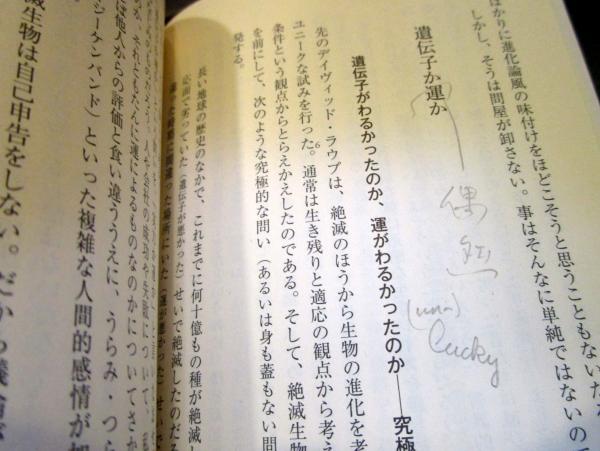 ばかりに進化論風の味付けをほどこそうと思うこともないだ
しかし、そうは問屋が卸さない。事はそんなに単純ではないの
偶然
(un-)
lucky
遺伝子か運か
遺伝子がわるかったのか、運がわるかったのか——究極
先のデイヴィッド・ラウプは、絶滅のほうから生物の進化を考
ユニークな試みを行った。6 通常は生き残りと適応の観点から考え
条件という観点からとらえかえしたのである。そして、絶滅生物
を前にして、次のような究極的な問い(あるいは身も蓋もない問
発する。
長い地球の歴史のなかで、これまでに何十億もの種が絶滅し
応面で劣っていた(遺伝子が悪かった)せいで絶滅したのだろ
違った時期に間違った場所にいた(運が悪かった)せいで
人や会社の成功や失敗について、
それともたんに運によるものなのかについてさか
は他人からの評価と食い違ううえに、うらみ・つら
ジーケンバンド)といった複雑な人間的感情が
滅生物は自己申告をしない。だから議論が